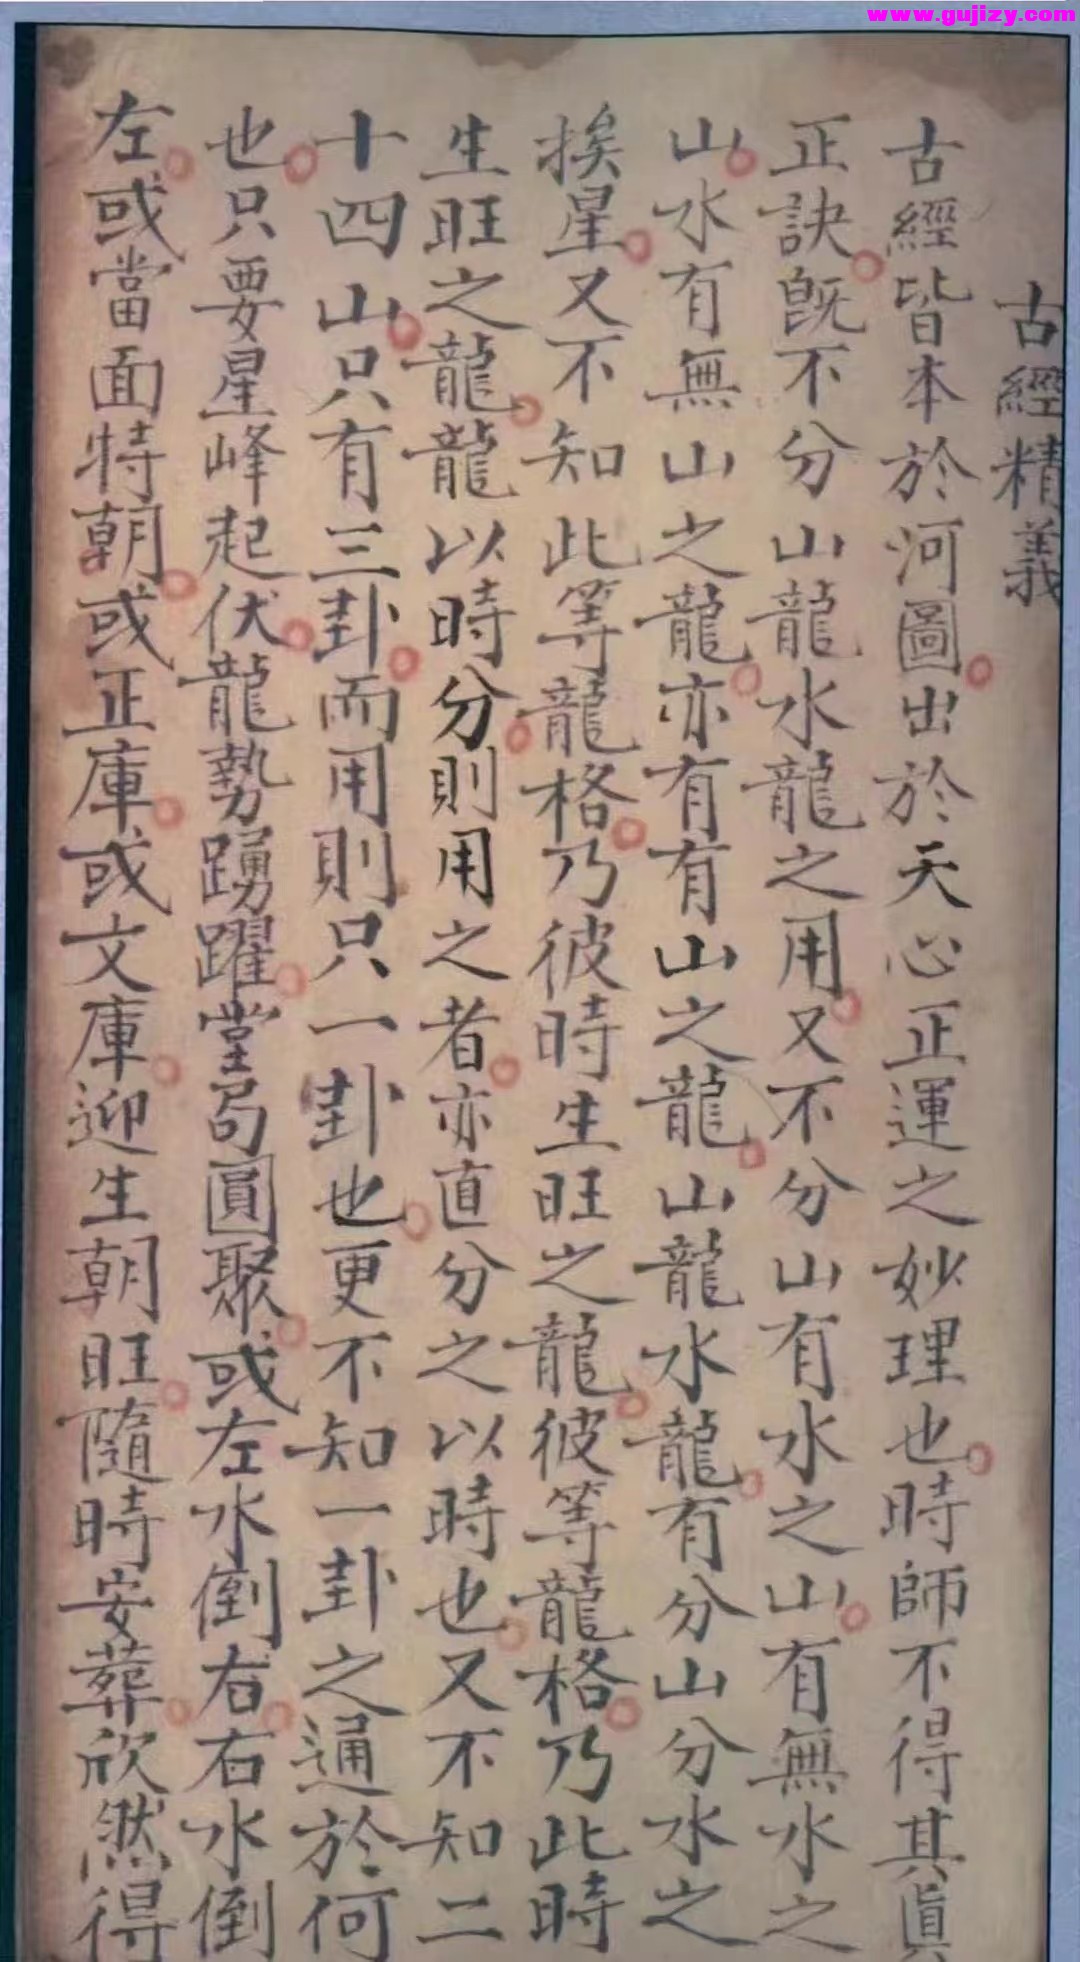 www.gujizy.com
古經精義
古經皆本於河圖出於天心正運之妙理也時師不得其眞
正訣旣不分山龍水龍之用又不分山有水之山有無水之
山水有無山之龍亦有有山之龍山龍水龍有分山分水之
挨星又不知此等龍格乃彼時生旺之龍彼等龍格乃此時
生旺之龍龍以時分則用之者亦直分之以時也又不知二
十四山只有三卦而用則只一卦也更不知一卦之通於何
也只要星峰起伏龍勢踴躍堂局圓聚或左水倒右右水倒
左或當面特朝或正庫或文庫迎生朝旺隨時安葬欣然得